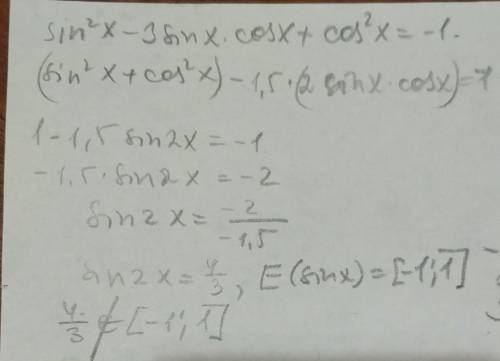 sin²x - 3 sinx · cosx + cos²x = -1.
(sin²x + cos²x) - 1,5 · (2 sinx · cosx) = -1
1 - 1,5 sin2x = -1
-1,5 · sin2x = -2
sin2x = -2/-1,5
sin2x = 4/3, E(sinx) = [-1; 1]
4/3 ∉ [-1; 1]